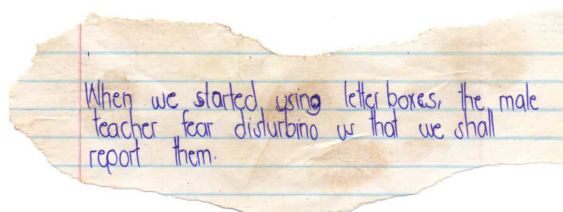 When we started using letter boxes, the male
teacher fear disturbino us that we shall
report them.